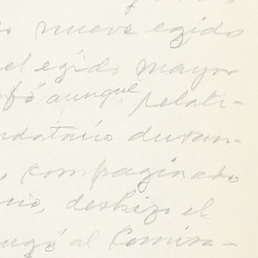 nueve egidos
el egido mayor
aunque relati-
ndatario duran-
compaginado
deshizo el
al Comisa-